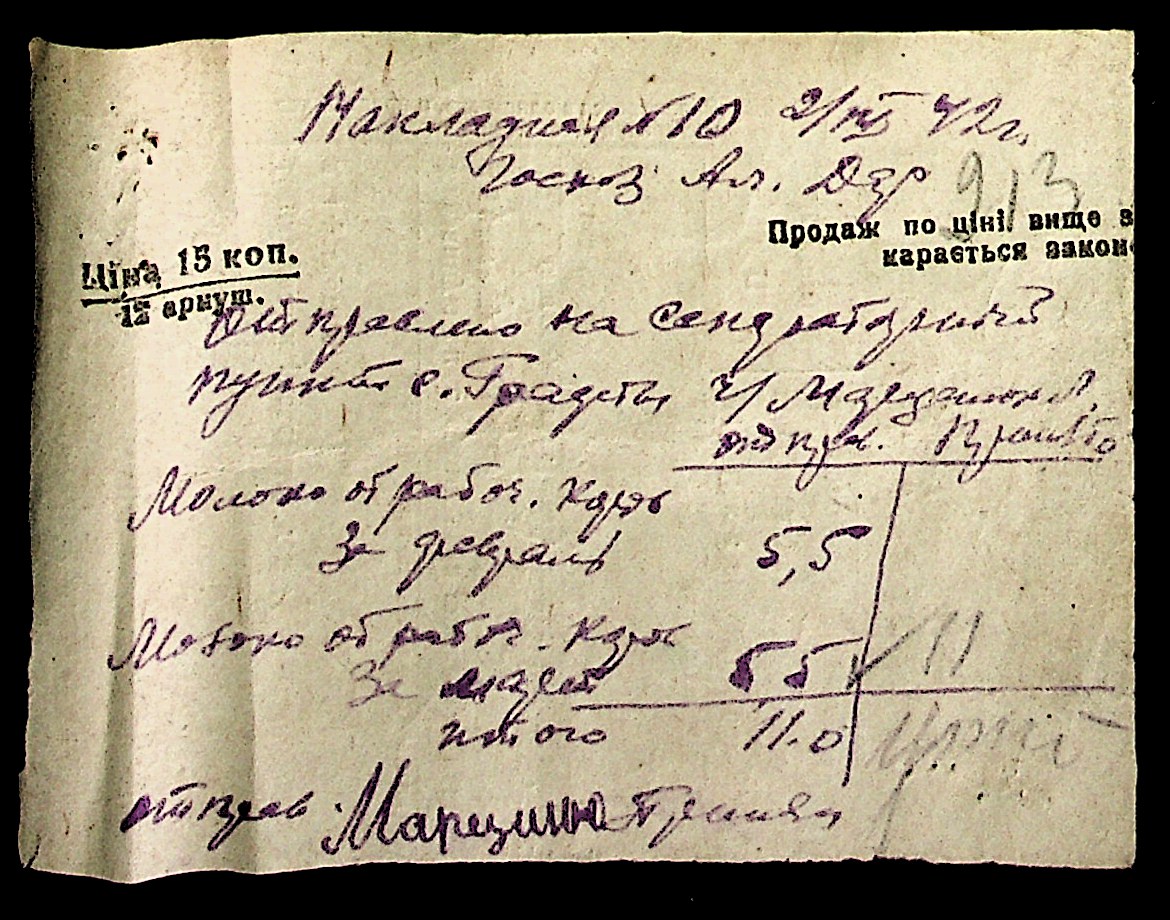 Накладная №10 2/III 42г.
Госхоз Ал. Дар
213
Продаж по ціні вище з
карається закон
Ціна 15 коп.
12 аркуш.
Отправлено на сепараторный
пункт с. ч/
отправ. Принято
Молоко от рабоч. коров
За февраль 5,5
Молоко от рабоч. коров
За март 5 5 11
итого 11.0
отправ.